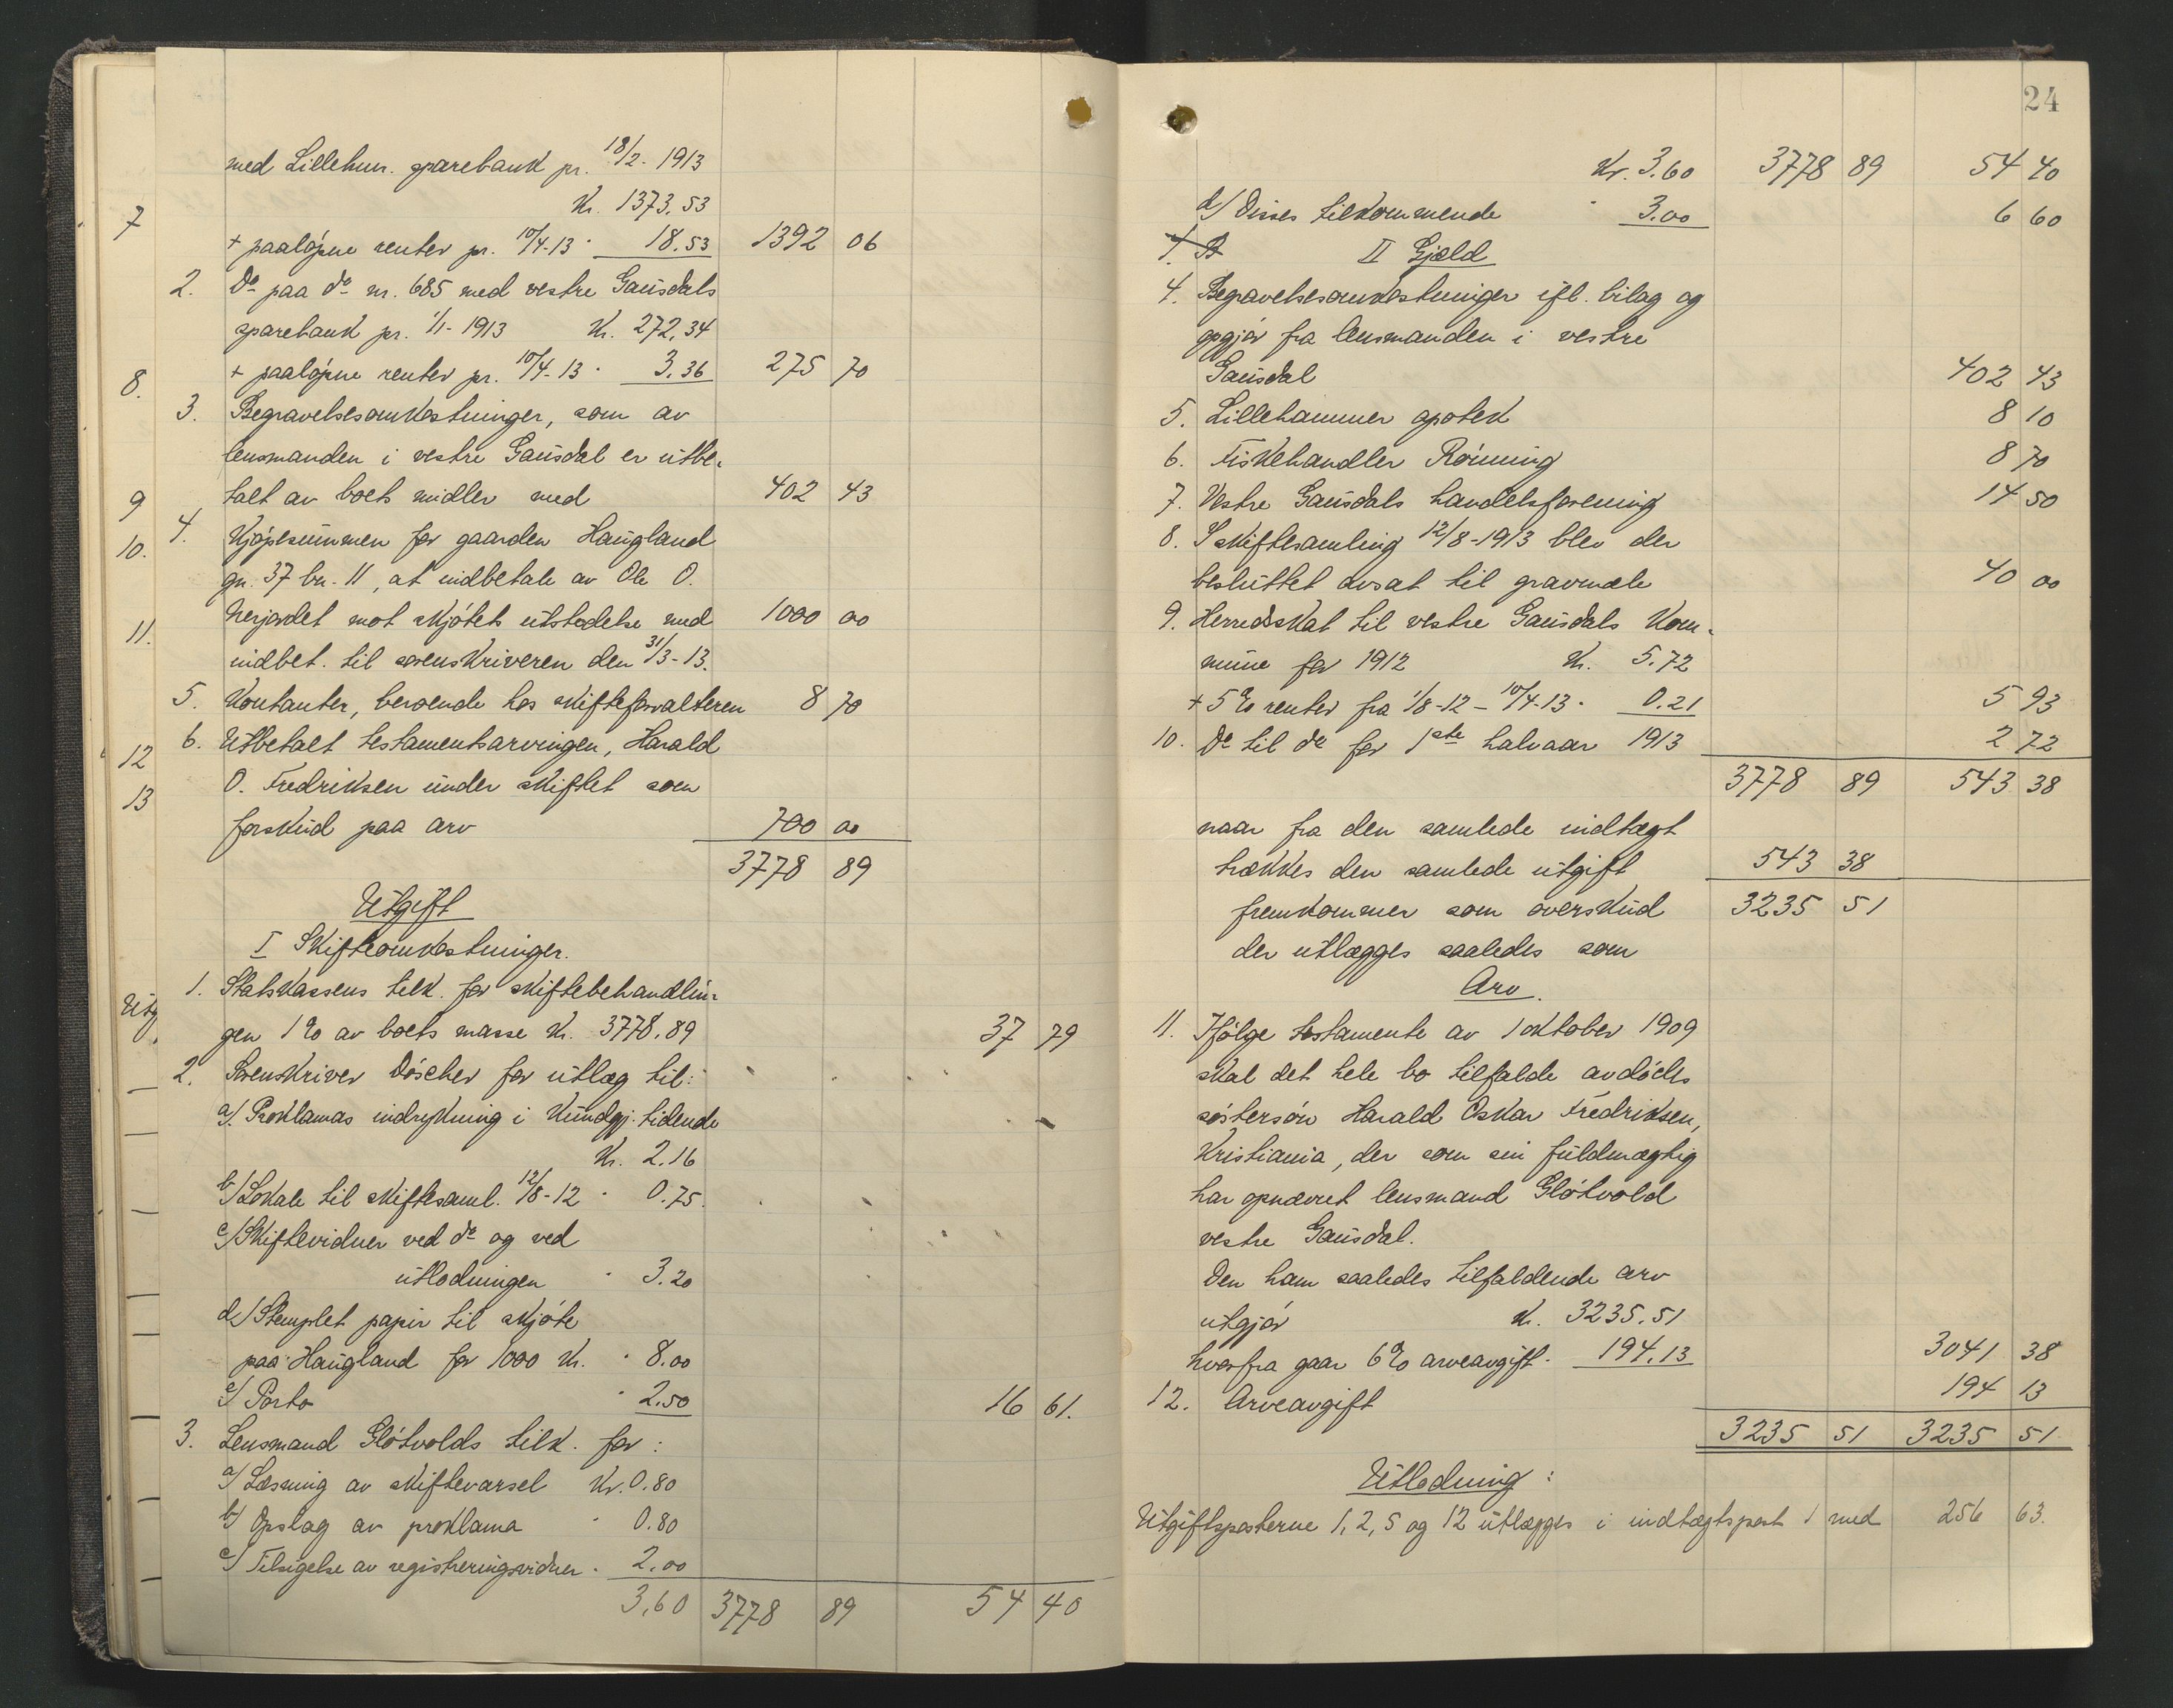 med Lillehm. sparebank pr. 18/2-1913
Kr. 1373.53
7
+ paaløpne renter pr. 10/4-13 " 18.53 1392 06
2. Do paa do nr. 685 med vestre Gausdals
sparebank pr. 1/1-1913 Kr. 272,34
8. + paaløpne renter pr. 10/4-13 " 3.36 275 70
3. Begravelsesomkostninger, som av
lensmanden i vestre Gausdal er utbe-
9 talt av boets midler med 402 43
10. 4. Kjøpesummen for gaarden Haugland
gn. 37 bn. 11, at indbetale av Ole O.
11. mot skjøtets utstedelse med 1000 00
indbet. til sorenskriveren den 31/3-13.
5. Kontanter, beroende hos skifteforvalteren 8 70
12 6. Utbetalt testamentsarvingen, Harald
13 O. Fredriksen under skiftet som
forskud paa arv 700 00
3778 89
Utgift
I Skifteomkostninger.
Utg 1. Statskassens tilk. for skiftebehandlin-
gen 1% av boets masse Kr. 3778.89 37 79
2. Sorenskriver Døscher for utlæg til:
a/. Proklamas indrykning i Kundgj. tidende
Kr. 2.16
b/ Lokale til skiftesaml. 12/8-12 " 0.75.
c/ Skiftevidner ved do og ved
utlodningen " 3.20
d/ Stemplet papir til skjøte
paa Haugland for 1000 Kr. " 8.00
e/ Porto " 2.50 16 61.
3. Lensmand Gløtvolds tilk. for:
a/ Læsning av skiftevarsel Kr. 0.80
b/ Opslag av proklama " 0.80
c/ Tilsigelse av registreringsvidner " 2.00
3,60 3778 89 54 40
24
Kr. 3.60 3778 89 54 40
d/ Disses tilkommende " 3.00 6 60
II Gjæld
4. Begravelsesomkostninger ifl. bilag og
opgjør fra lensmanden i vestre
Gausdal 402 43
5. Lillehammer apotek 8 10
6. Fiskehandler Rønning 8 70
7. Vestre Gausdals handelsforening 14 50
8. I skiftesamling 12/8-1913 blev der
besluttet avsat til gravmæle 40 00
9. Herredskat til vestre Gausdals kom-
mune for 1912 Kr. 5.72
+ 5% renter fra 1/8-12 – 10/4-13 " 0.21 5 93
10. Do til do for 1ste halvaar 1913 2 72
3778 89 543 38
naar fra den samlede indtægt
trækkes den samlede utgift 543 38
fremkommer som overskud 3235 51
der utlægges saaledes som
Arv.
11. Ifølge testamente av 1 oktober 1909
skal det hele bo tilfalde avdødes
søstersøn Harald Oskar Fredriksen,
Kristiania, der som sin fuldmægtig
har opnævnt lensmand Gløtvold
vestre Gausdal.
Den ham saaledes tilfaldende arv
utgjør Kr. 3235.51
hvorfra gaar 6% arveavgift " 194.13 3041 38
12. Arveavgift 194 13
3235 51 3235 51
Utlodning:
Utgiftsposterne 1, 2, 5 og 12 utlægges i indtægtspost 1 med 256 63.